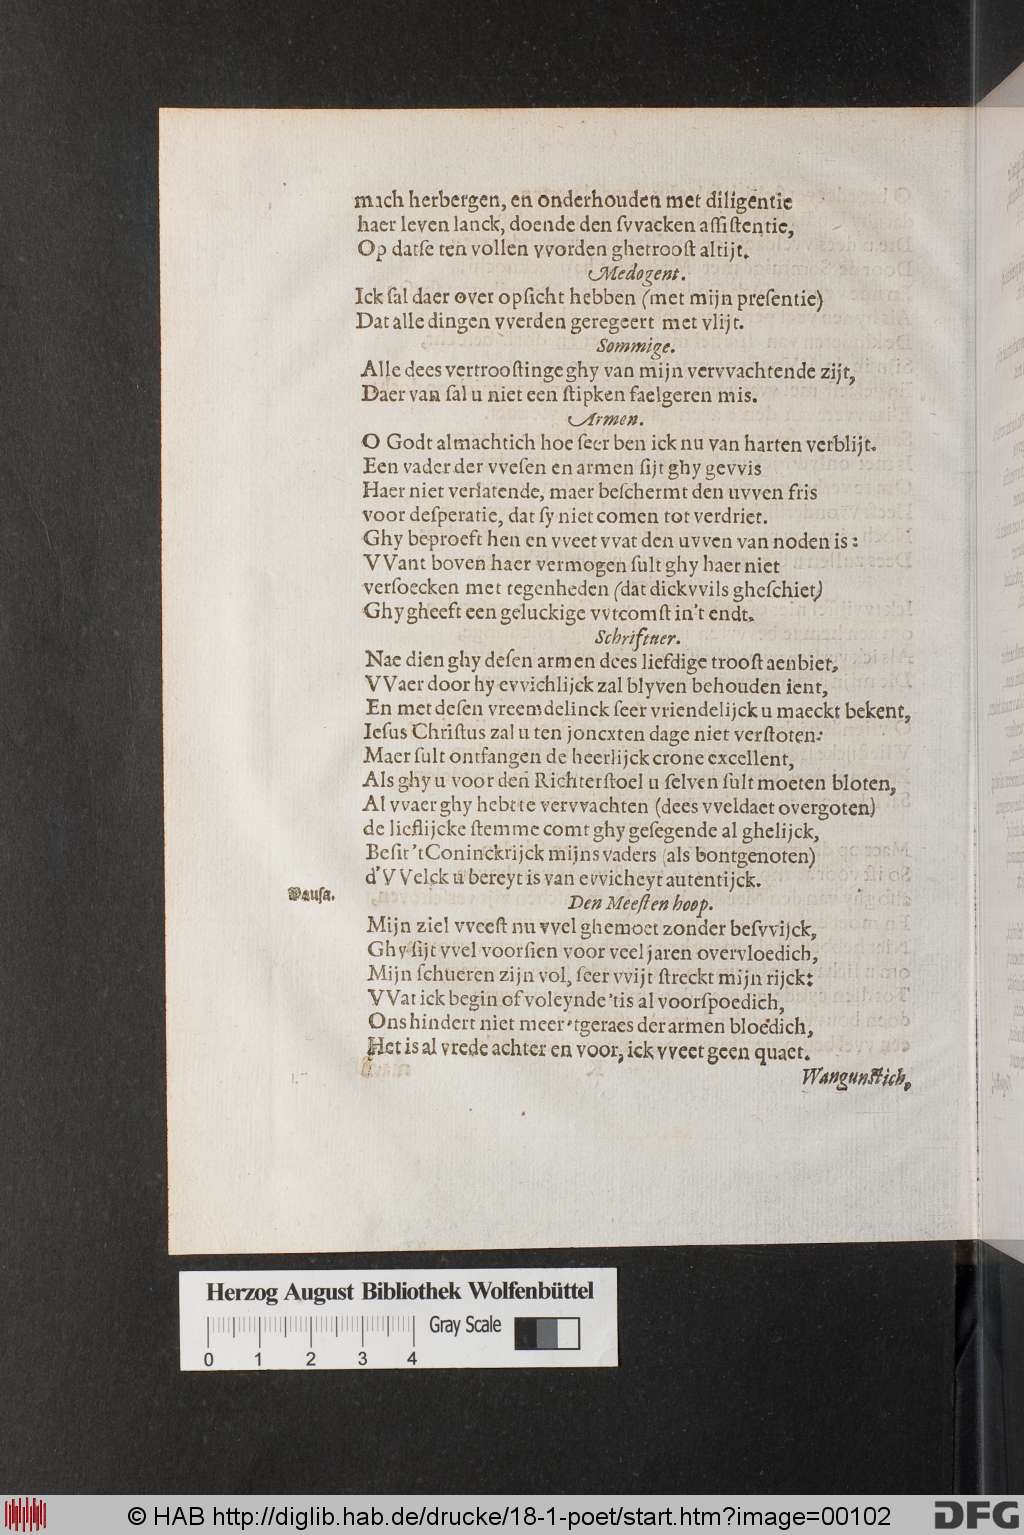 mach herbergen, en onderhouden met diligentie
haer leven lanck, doende den ſvvacken aſſiſtentie,
Op datſe ten vollen vvorden ghetrooſt altijt.
Medogent.
Ick ſal daer over opſicht hebben (met mijn preſentie)
Dat alle dingen vverden geregeert met vlijt.
Sommige.
Alle dees vertrooſtinge ghy van mijn vervvachtende zijt,
Daer van ſal u niet een ſtipken faelgeren mis.
Armen.
O Godt almachtich hoe ſeer ben ick nu van harten verblijt.
Een vader der vveſen en armen ſijt ghy gevvis
Haer niet verlatende, maer beſchermt den uvven fris
voor deſperatie, dat ſy niet comen tot verdriet.
Ghy beproeft hen en vveet vvat den uvven van noden is:
VVant boven haer vermogen ſult ghy haer niet
verſoecken met tegenheden (dat dickvvils gheſchiet)
Ghy gheeft een geluckige vvtcomſt in't endt.
Schriftuer.
Nae dien ghy deſen armen dees liefdige trooſt aenbiet,
VVaer door hy evvichlijck zal blyven behouden ient,
En met deſen vreemdelinck ſeer vriendelijck u maeckt bekent,
Ieſus Chriſtus zal u ten joncxten dage niet verſtoten:
Maer ſult ontfangen de heerlijck crone excellent,
Als ghy u voor den Richterſtoel u ſelven ſult moeten bloten,
Al vvaer ghy hebt te vervvachten (dees vveldaet overgoten)
de lieflijcke ſtemme comt ghy geſegende al ghelijck,
Beſit 't Coninckrijck mijns vaders (als bontgenoten)
d'VVelck u bereyt is van evvicheyt autentijck.
Pauſa.
Den Meeſten hoop.
Mijn ziel vveeſt nu vvel ghemoet zonder beſvvijck,
Ghy ſijt vvel voorſien voor veel jaren overvloedich,
Mijn ſchueren zijn vol, ſeer vvijt ſtreckt mijn rijck:
VVat ick begin of voleynde 'tis al voorſpoedich,
Ons hindert niet meer 'tgeraes der armen bloedich,
Het is al vrede achter en voor, ick vveet geen quaet.
Wangunſtich,
Herzog August Bibliothek Wolfenbüttel
Gray Scale
0 1 2 3 4
© HAB http://diglib.hab.de/drucke/18-1-poet/start.htm?image=00102
DFG